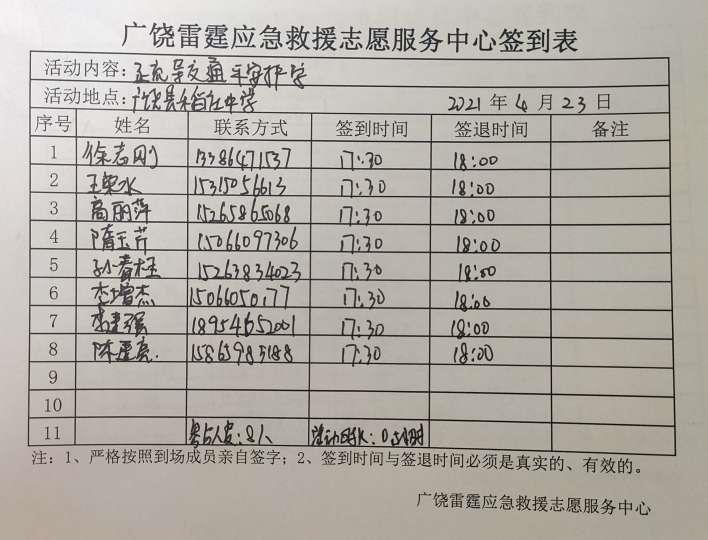 广饶雷霆应急救援志愿服务中心签到表
活动内容：交通平安护学
活动地点：广饶县稻庄中学 2021年4月23日
序号 姓名 联系方式 签到时间 签退时间 备注
1 徐志刚 13386471537 17:30 18:00
2 王荣水 15315056613 17:30 18:00
3 高丽萍 15265865068 17:30 18:00
4 隋玉芹 15066097306 17:30 18:00
5 孙青枝 15263834023 17:30 18:00
6 李增杰 15066050177 17:30 18:00
7 李建强 18954652001 17:30 18:00
8 陈 15865985188 17:30 18:00
9
10
11 参与人数：8人 活动时长：0.5小时
注：1、严格按照到场成员亲自签字；2、签到时间与签退时间必须是真实的、有效的。
广饶雷霆应急救援志愿服务中心